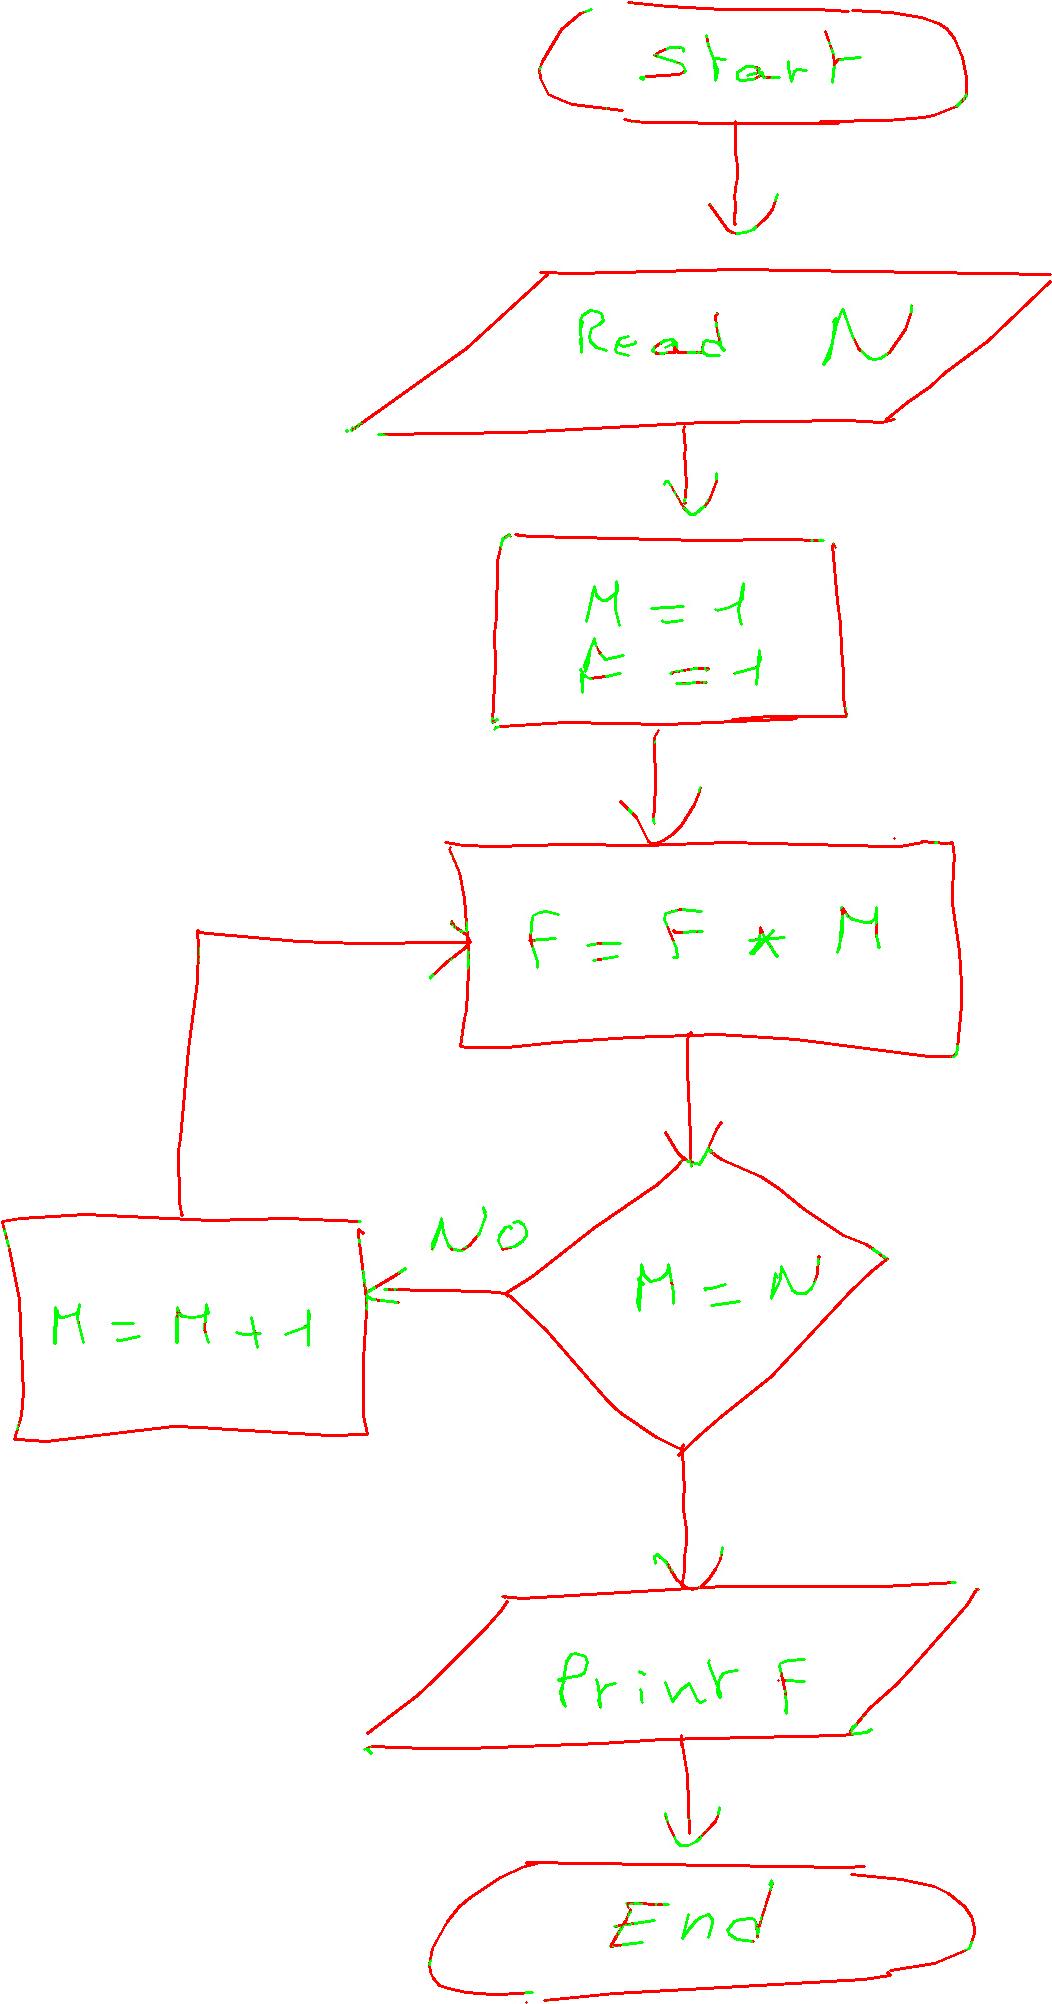 Start
Read N
M = 1
F = 1
F = F * M
No
M = N
M = M + 1
Print F
End